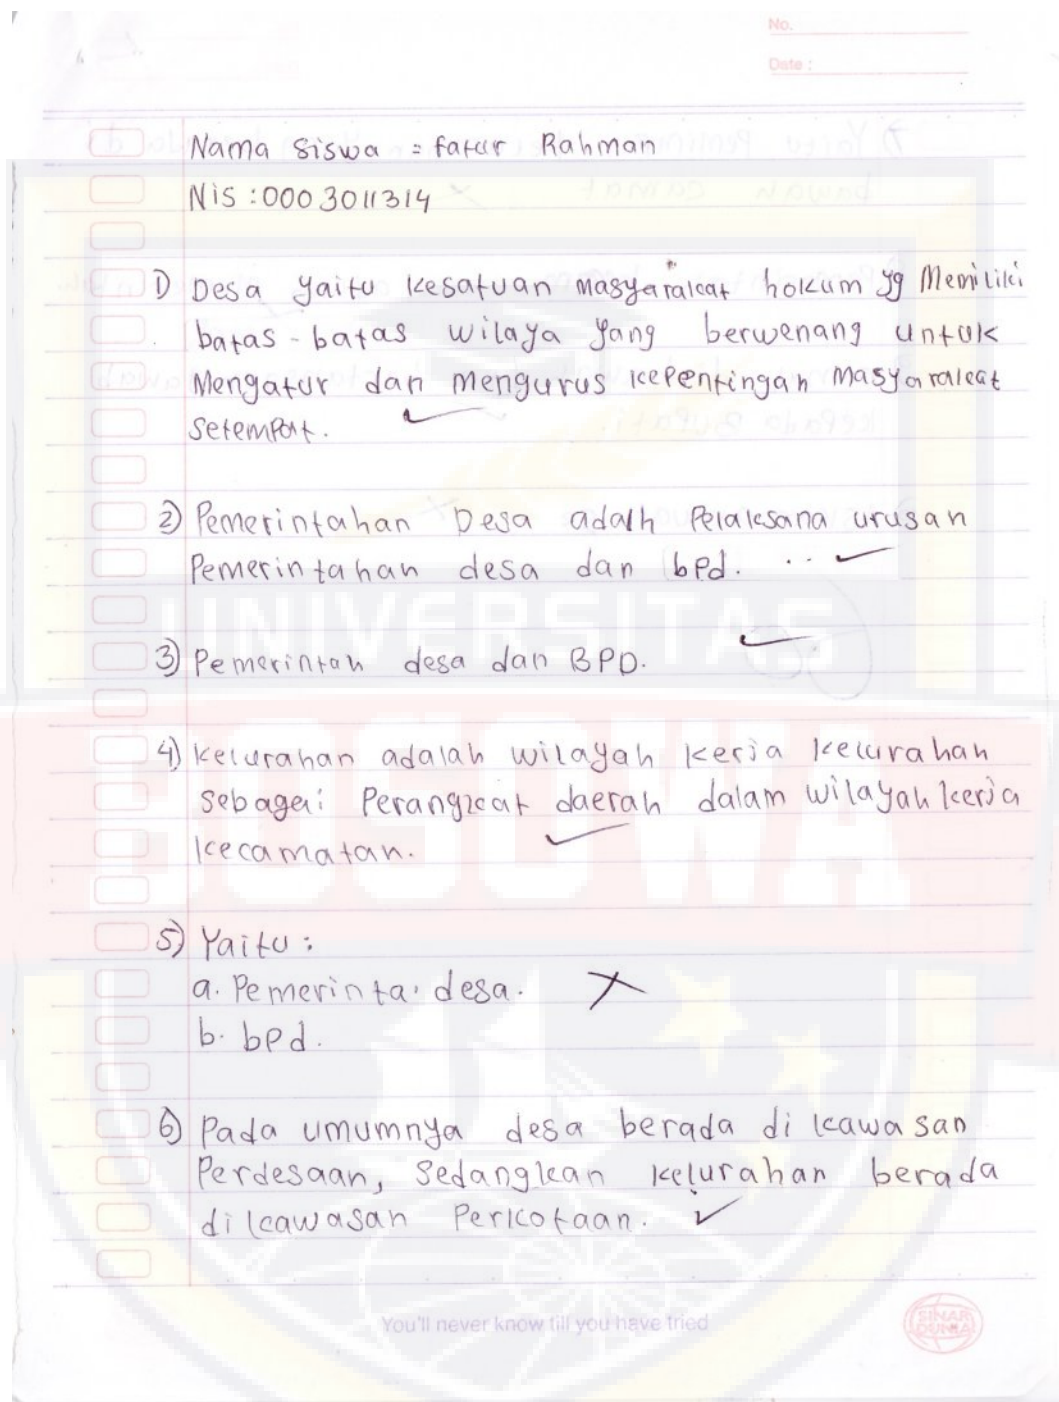 No.
Date :
Nama Siswa = fatur Rahman
NiS : 0003011314
1) Desa yaitu kesatuan masyarakat hokum yg Memiliki
batas - batas wilaya yang berwenang untuk
Mengatur dan mengurus kepentingan Masyarakat
Setempat.
2) Pemerintahan Desa adalh Pelaksana urusan
Pemerintahan desa dan bpd. ..
3) Pemerintah desa dan BPD.
4) Kelurahan adalah wilayah kerja kelurahan
sebagai Perangkat daerah dalam wilayah kerja
kecamatan.
5) Yaitu :
a. Pemerinta desa.
b. bpd.
6) Pada umumnya desa berada di kawasan
Perdesaan, Sedangkan kelurahan berada
di kawasan Perkotaan.
UNIVERSITAS
BOSOWA
You'll never know till you have tried
SINAR
DUNIA